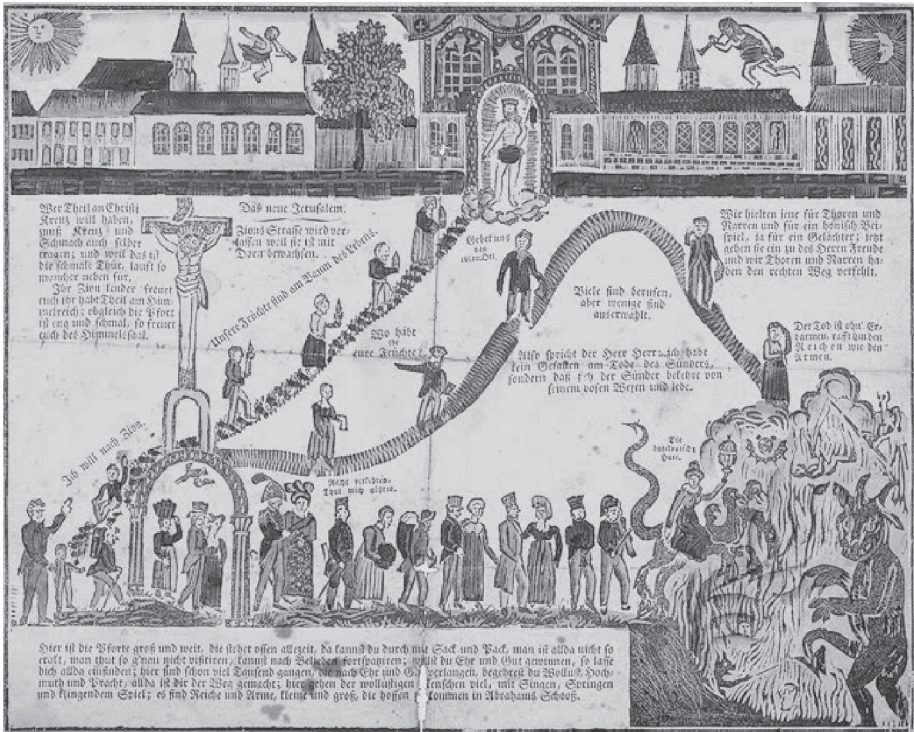 Wer Theil an Christi
Kreitz will haben,
muß Kreutz und
Schmach auch selber
tragen; und weil das ist
die schmale Thür, lauft so
mancher neben für.
Ihr Zion länder freuet
euch ihr habt Theil am Him-
melreich; obgleich die Pfort
ist eng und schmal, so freuet
euch des Himmelssaal.
Das neue Jerusalem.
Zions Strasse wird ver-
lassen weil sie ist mit
Dorn bewachsen.
Unsere Früchte sind am Baum des Lebens.
Gebet uns
von
Wo habt
ihr
eure Früchte?
Ich will nach Zion.
Viele sind berufen,
aber wenige sind
auserwählt.
Also spricht der Herr Herr: ich habe
kein Gefallen am Tode des Sünders,
sondern daß sich der Sünder bekehre von
seinem bösen Wesen und lebe.
Wir hielten jene für Thoren und
Narren und für ein hönisch Bei-
spiel, ja für ein Gelächter; jetzt
gehen sie ein zu des Herrn Freude
und wir Thoren und Narren ha-
ben den rechten Weg verfehlt.
Der Tod ist ohn' Er-
barmen, rafft hin den
Reichen wie den
Armen.
Thut mich
Die
babilonische
Hure.
Hier ist die Pforte groß und weit, die stehet offen allezeit, da kannst du durch mit Sack und Pack, man ist allda nicht so
exakt, man thut so g'nau nicht visitiren, kannst nach Belieben fortspaziren; willst du Ehr und Gut gewinnen, so lasse
dich allda einfinden; hier sind schon viel Tausend gangen, die nach Ehr und Gut verlangen, begehrst du Wollust, Hoch-
muth und Pracht, allda ist dir der Weg gemacht; hier gehen der wollüstigen Menschen viel, mit Singen, Springen
und klingendem Spiel; es sind Reiche und Arme, kleine und groß, die hoffen kommen in Abrahams Schooß.